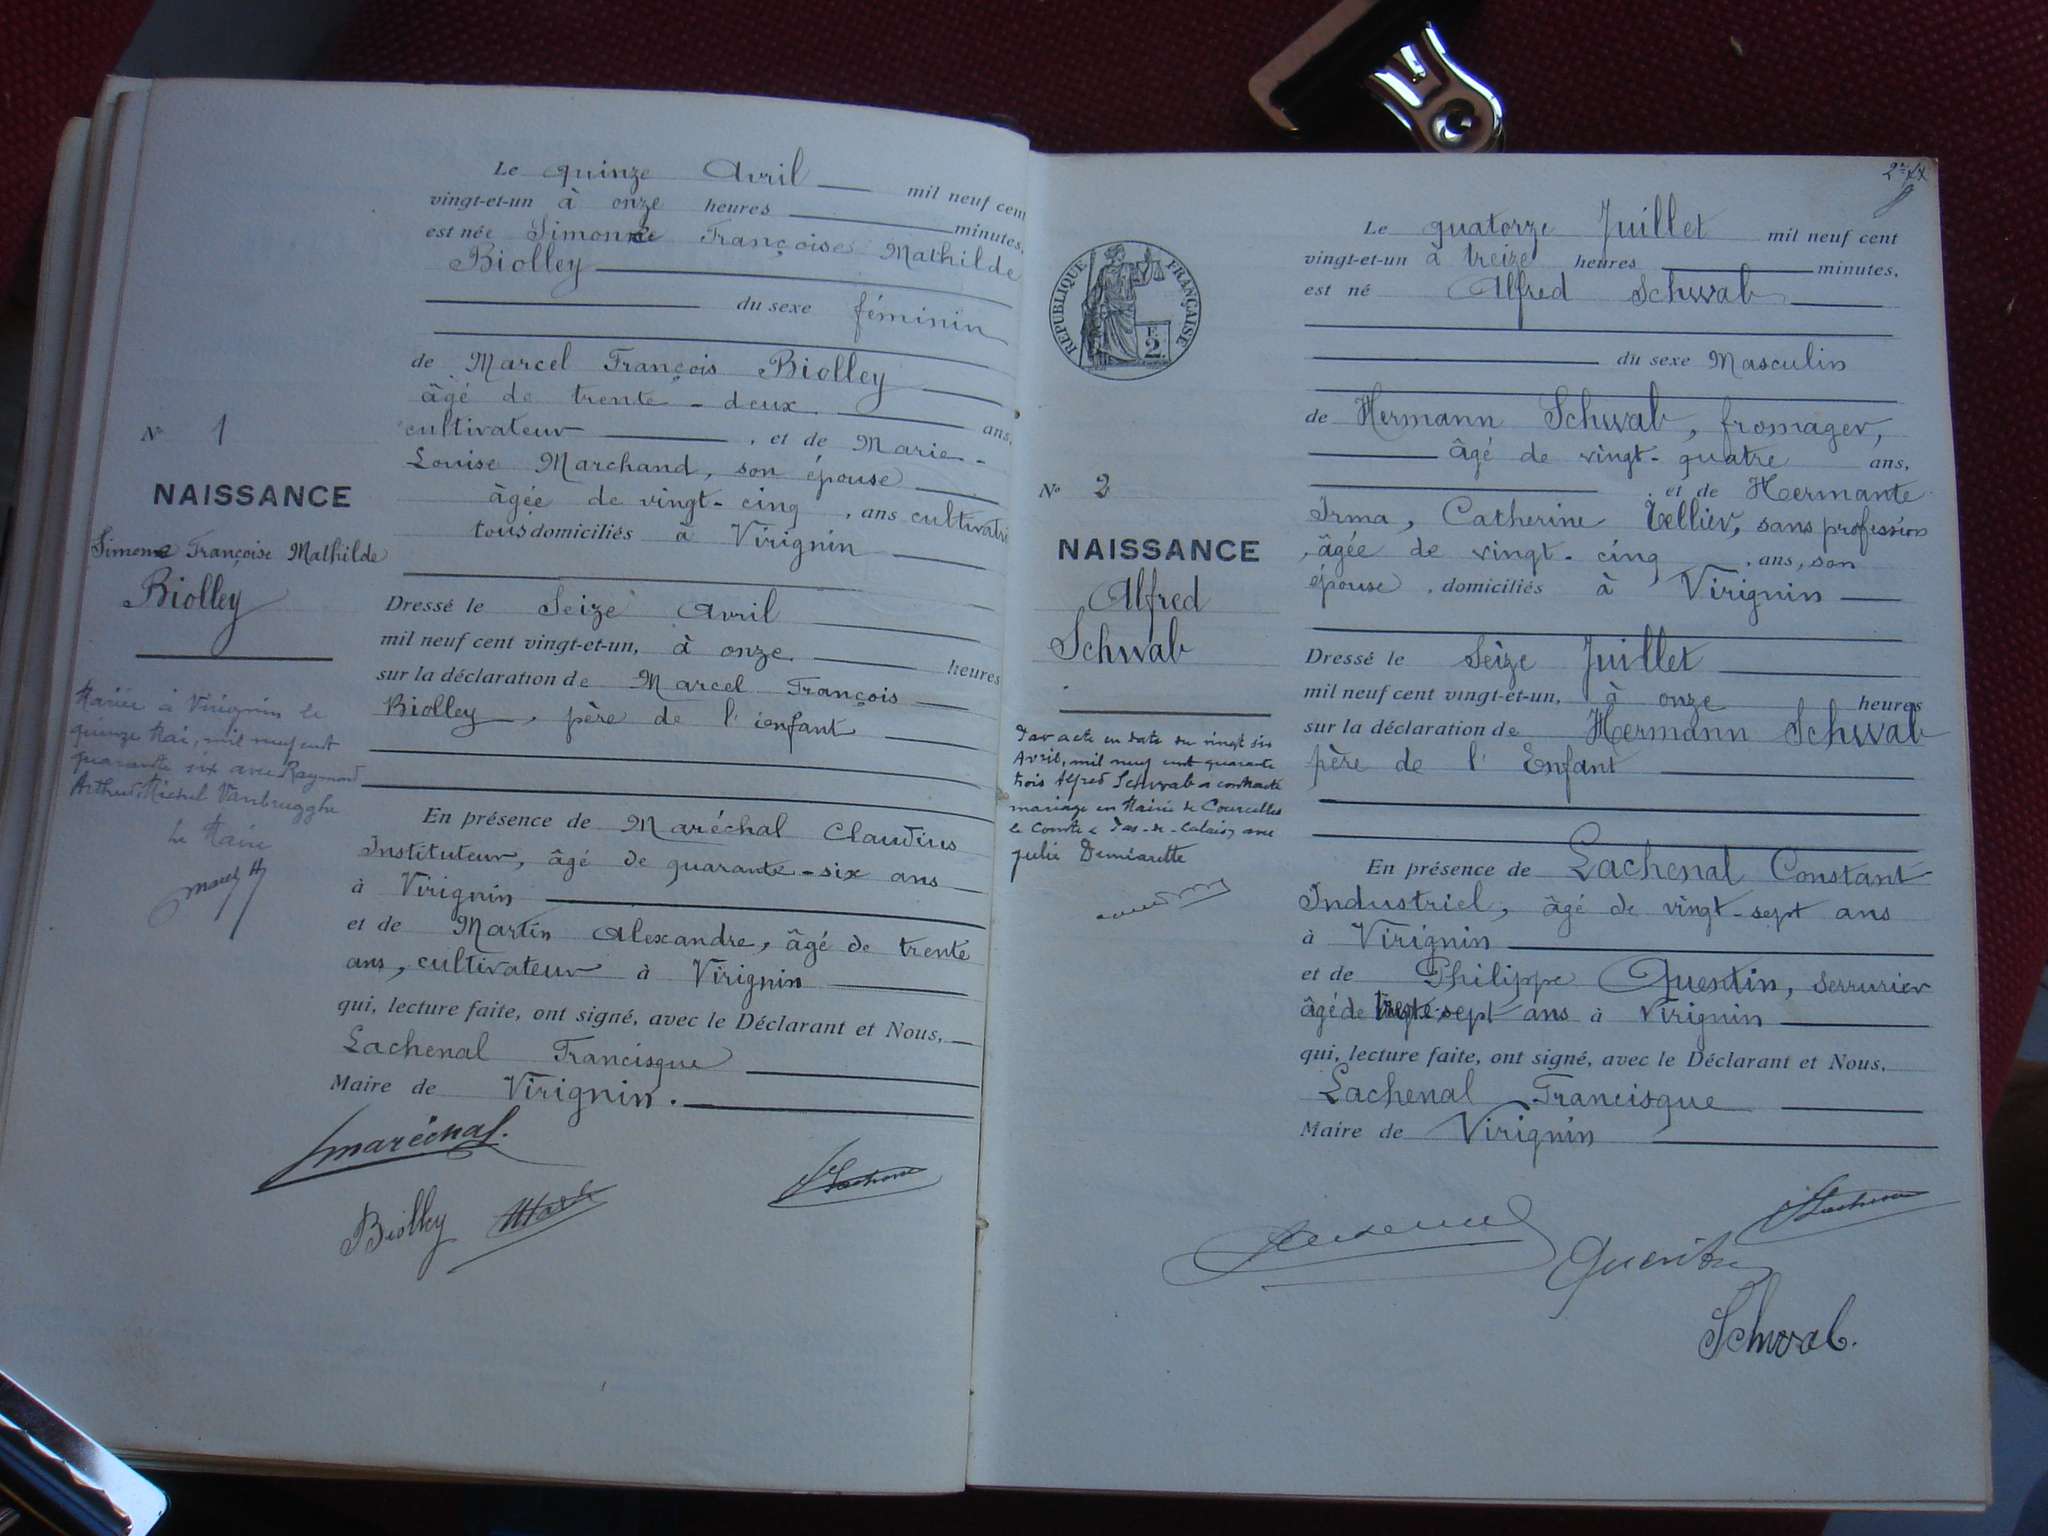 Le quinze Avril mil neuf cent
vingt-et-un à onze heures minutes,
est née Simonne Françoise Mathilde
Biolley
du sexe féminin
de Marcel François Biolley
âgé de trente-deux ans,
cultivateur, et de Marie-
Louise Marchand, son épouse
âgée de vingt-cinq, ans cultivatrice
tous domiciliés à Virignin
Dressé le Seize Avril
mil neuf cent vingt-et-un, à onze heures
sur la déclaration de Marcel François
Biolley, père de l'enfant
En présence de Maréchal Claudius
Instituteur, âgé de quarante-six ans
à Virignin
et de Martin Alexandre, âgé de trente
ans, cultivateur à Virignin
qui, lecture faite, ont signé, avec le Déclarant et Nous,
Lachenal Francisque
Maire de Virignin.
Maréchal.
Biolley
No 1
NAISSANCE
Simone Françoise Mathilde
Biolley
Mariée à Virignin le
quinze Mai, mil neuf cent
quarante six avec Raymond
Arthur Michel Vanbrugghe
Le Maire
REPUBLIQUE FRANÇAISE
2
No 2
NAISSANCE
Alfred
Schwab
Par acte en date du vingt six
Avril, mil neuf cent quarante
trois Alfred Schwab a contracté
mariage en Mairie de Courcelles
le Comte (Pas-de-Calais) avec
Julie
Le quatorze Juillet mil neuf cent
vingt-et-un à treize heures minutes,
est né Alfred Schwab
du sexe Masculin
de Hermann Schwab, fromager,
âgé de vingt-quatre ans,
, et de Hermante
Irma, Catherine Tellier, sans profession
, âgée de vingt-cinq , ans, son
épouse, domiciliés à Virignin
Dressé le Seize Juillet
mil neuf cent vingt-et-un, à onze heures
sur la déclaration de Hermann Schwab
père de l'Enfant
En présence de Lachenal Constant
Industriel, âgé de vingt-sept ans
à Virignin
et de Philippe Quentin, serrurier
âgé de trente-sept ans à Virignin
qui, lecture faite, ont signé, avec le Déclarant et Nous,
Lachenal Francisque
Maire de Virignin
Quentin
Schwab.